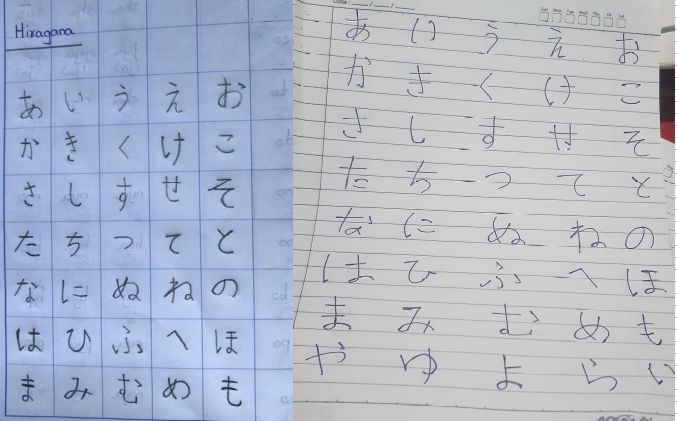 Hiragana
あ い う え お
か き く け こ
さ し す せ そ
た ち つ て と
な に ぬ ね の
は ひ ふ へ ほ
ま み む め も
Date:
あ い う え お
か き く け こ
さ し す せ そ
た ち つ て と
な に ぬ ね の
は ひ ふ へ ほ
ま み む め も
や ゆ よ ら い